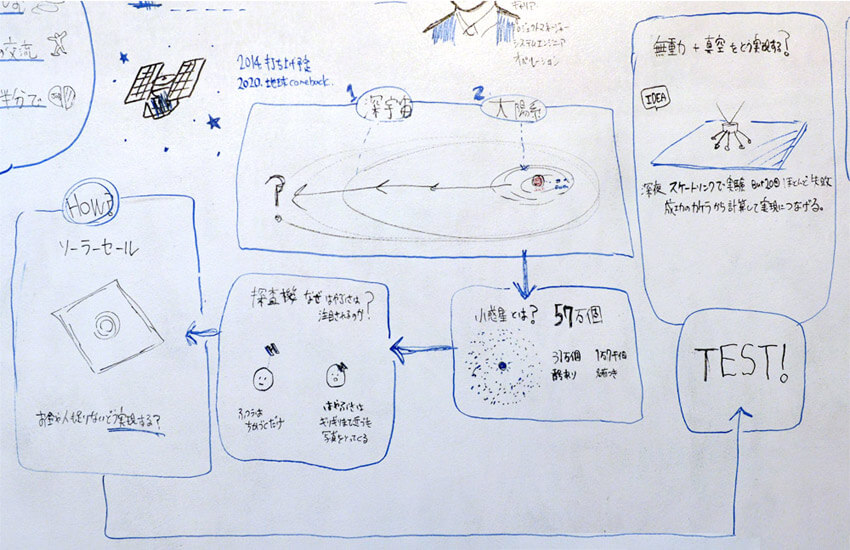 の交流
半分で
2014. 打ち上げ予定
2020. 地球comeback.
キャリア
プロジェクトマネージャー
システムエンジニア
オペレーション
1 深宇宙
2. 太陽系
?
無動力 + 真空をどう実現する?
IDEA
深夜 スケートリンクで実験 But 20回 ほとんど失敗
成功のカケラから計算して実現につなげる。
How?
ソーラーセール
お金や人も足りないどう実現する?
探査機 なぜ はやぶさは
注目されるのか?
ふつうは
はやぶさは
ギリギリまで近づき
写真をとってくる
小惑星とは? 57万個
37万個 1万7千個
番号あり 名前つき
TEST!